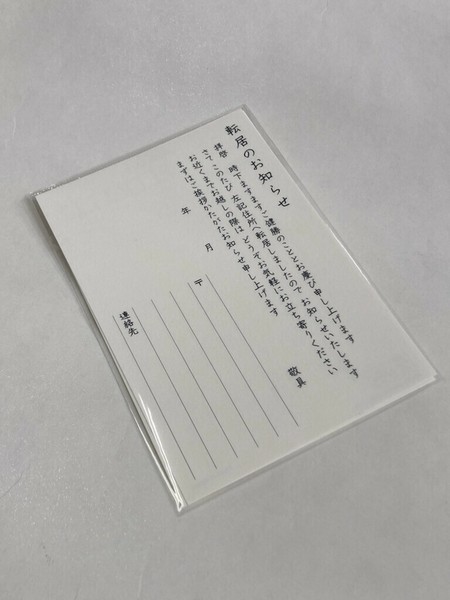 転居のお知らせ
拝啓 時下ますますご健勝のこととお慶び申し上げます
さて このたび 左記住所へ転居しましたので お知らせいたします
お近くまでお越しの際は どうぞお気軽にお立ち寄りください
まずはご挨拶かたがたお知らせ申し上げます
敬具
年 月
〒
連絡先